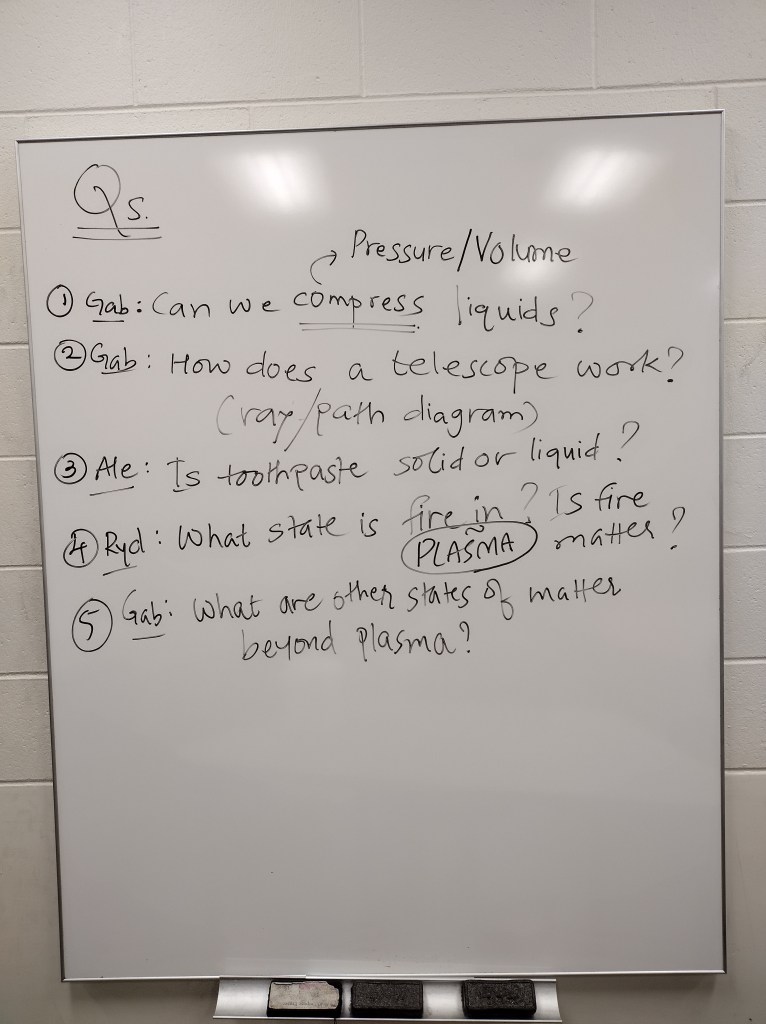 Qs.
Pressure/Volume
① Gab: Can we compress liquids?
② Gab: How does a telescope work?
(ray/path diagram)
③ Ale: Is toothpaste solid or liquid?
④ Ryd: What state is fire in? Is fire
PLASMA matter?
⑤ Gab: What are other states of matter
beyond plasma?